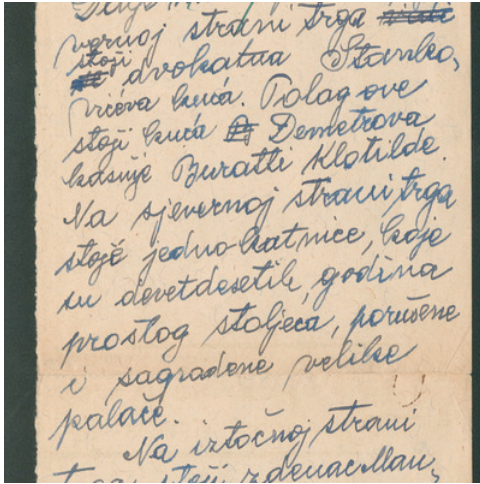 vernoj strani trga
stoji dvokatna Stanko,
vićeva kuća. Polag ove
stoji kuća Demetrova
kasnije Buratti Klotilde.
Na sjevernoj strani trga
stojè jedno-katnice, koje
su devetdesetih godina
prošlog stoljeća, porušene
i sagradene velike
palače.
Na iztočnoj strani
trga stoji zdenac Man,